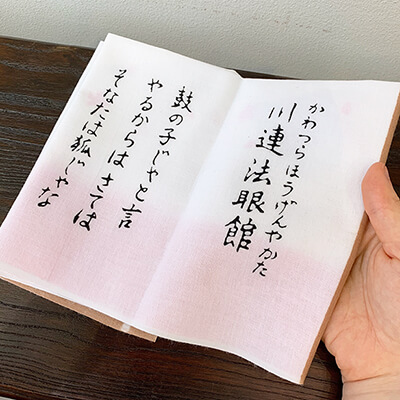 かわつらほうげんやかた
川連法眼館
鼓の子じゃと言
やるからはさては
そなたは狐じゃな